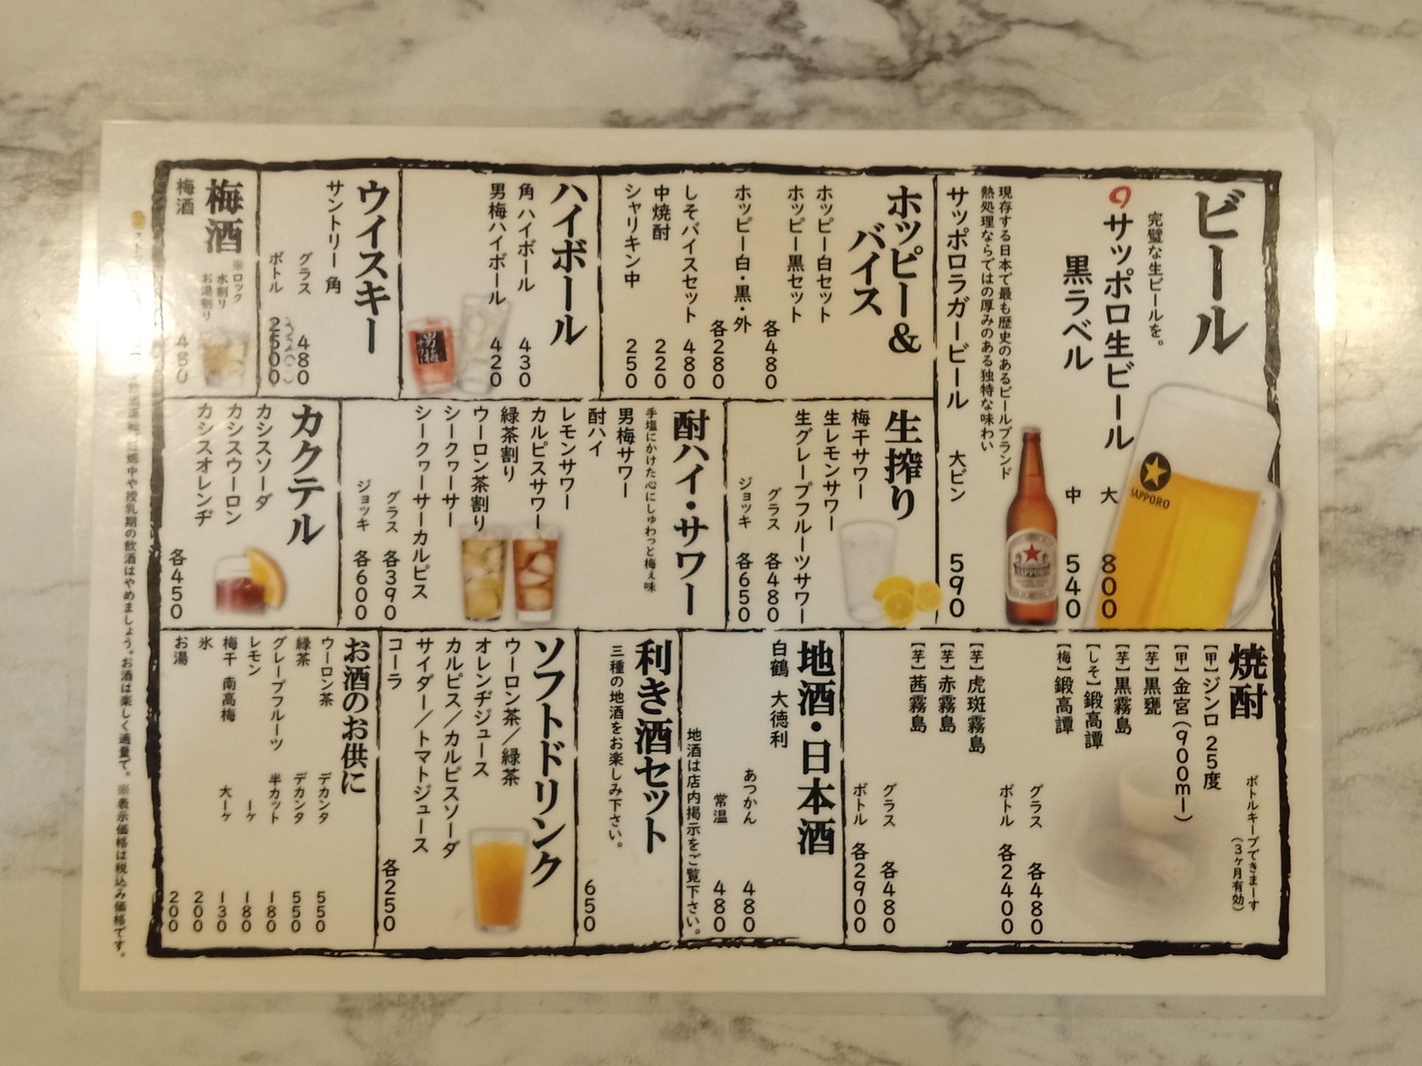 ビール
完璧な生ビールを。
サッポロ生ビール
黒ラベル
大 800
中 540
SAPPORO
現存する日本で最も歴史のあるビールブランド
熱処理ならではの厚みのある独特な味わい
サッポロラガービール 大ビン 590
ホッピー&
バイス
ホッピー白セット
ホッピー黒セット
各480
ホッピー白・黒・外
各280
しそバイスセット 480
中焼酎 220
シャリキン中 250
ハイボール
角 ハイボール 430
男梅ハイボール 420
ウイスキー
サントリー 角
グラス 480
ボトル 2500
梅酒
※ロック
水割り
お湯割り
梅酒 480
生搾り
梅干サワー
生レモンサワー
生グレープフルーツサワー
グラス 各480
ジョッキ 各650
酎ハイ・サワー
手塩にかけた心にしゅわっと梅ぇ味
男梅サワー
酎ハイ
レモンサワー
カルピスサワー
緑茶割り
ウーロン茶割り
シークヮーサー
シークヮーサーカルピス
グラス 各390
ジョッキ 各600
カクテル
カシスソーダ
カシスウーロン
カシスオレンヂ
各450
焼酎
ボトルキープできまーす
(3ヶ月有効)
【甲】ジンロ 25度
【甲】金宮(900ml)
【芋】黒甕
【芋】黒霧島
【しそ】鍛高譚
【梅】鍛高譚
グラス 各480
ボトル 各2400
【芋】虎斑霧島
【芋】赤霧島
【芋】茜霧島
グラス 各480
ボトル 各2900
地酒・日本酒
白鶴 大徳利
あつかん 480
常温 480
地酒は店内掲示をご覧下さい。
利き酒セット
三種の地酒をお楽しみ下さい。
650
ソフトドリンク
ウーロン茶/緑茶
オレンヂジュース
カルピス/カルピスソーダ
サイダー/トマトジュース
コーラ
各250
お酒のお供に
ウーロン茶 デカンタ 550
緑茶 デカンタ 550
グレープフルーツ 半カット 180
レモン 1ケ 180
梅干 南高梅 大1ケ 130
氷 200
お湯 200
妊娠中や授乳期の飲酒はやめましょう。お酒は楽しく適量で。※表示価格は税込み価格です。